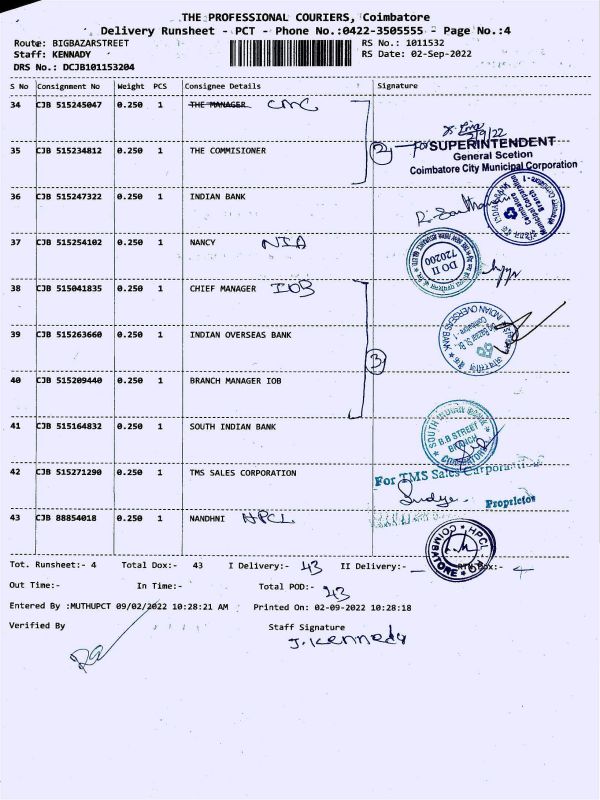 THE PROFESSIONAL COURIERS, Coimbatore
Delivery Runsheet - PCT - Phone No.:0422-3505555 - Page No.:4
Route: BIGBAZARSTREET RS No.: 1011532
Staff: KENNADY RS Date: 02-Sep-2022
DRS No.: DCJB101153204
S No Consignment No Weight PCS Consignee Details Signature
34 CJB 515245047 0.250 1 THE MANAGER CMC
2/9/22
35 CJB 515234812 0.250 1 THE COMMISIONER 2 for SUPERINTENDENT
General Scetion
Coimbatore City Municipal Corporation
36 CJB 515247322 0.250 1 INDIAN BANK
37 CJB 515254102 0.250 1 NANCY NIA
DO II
720200
38 CJB 515041835 0.250 1 CHIEF MANAGER IOB
39 CJB 515263660 0.250 1 INDIAN OVERSEAS BANK
INDIAN OVERSEAS BANK
3
40 CJB 515209440 0.250 1 BRANCH MANAGER IOB
41 CJB 515164832 0.250 1 SOUTH INDIAN BANK
SOUTH INDIAN BANK
B.B STREET
BRANCH
COIMBATORE
42 CJB 515271290 0.250 1 TMS SALES CORPORATION
For TMS Sales Corporation
Proprietor
43 CJB 88854018 0.250 1 NANDHNI HPCL
HPCL RO COIMBATORE
Tot. Runsheet:- 4 Total Dox:- 43 I Delivery:- 43 II Delivery:- - RTN Dox:- 4
Out Time:- In Time:- Total POD:- 43
Entered By :MUTHUPCT 09/02/2022 10:28:21 AM Printed On: 02-09-2022 10:28:18
Verified By Staff Signature
J. Kennedy